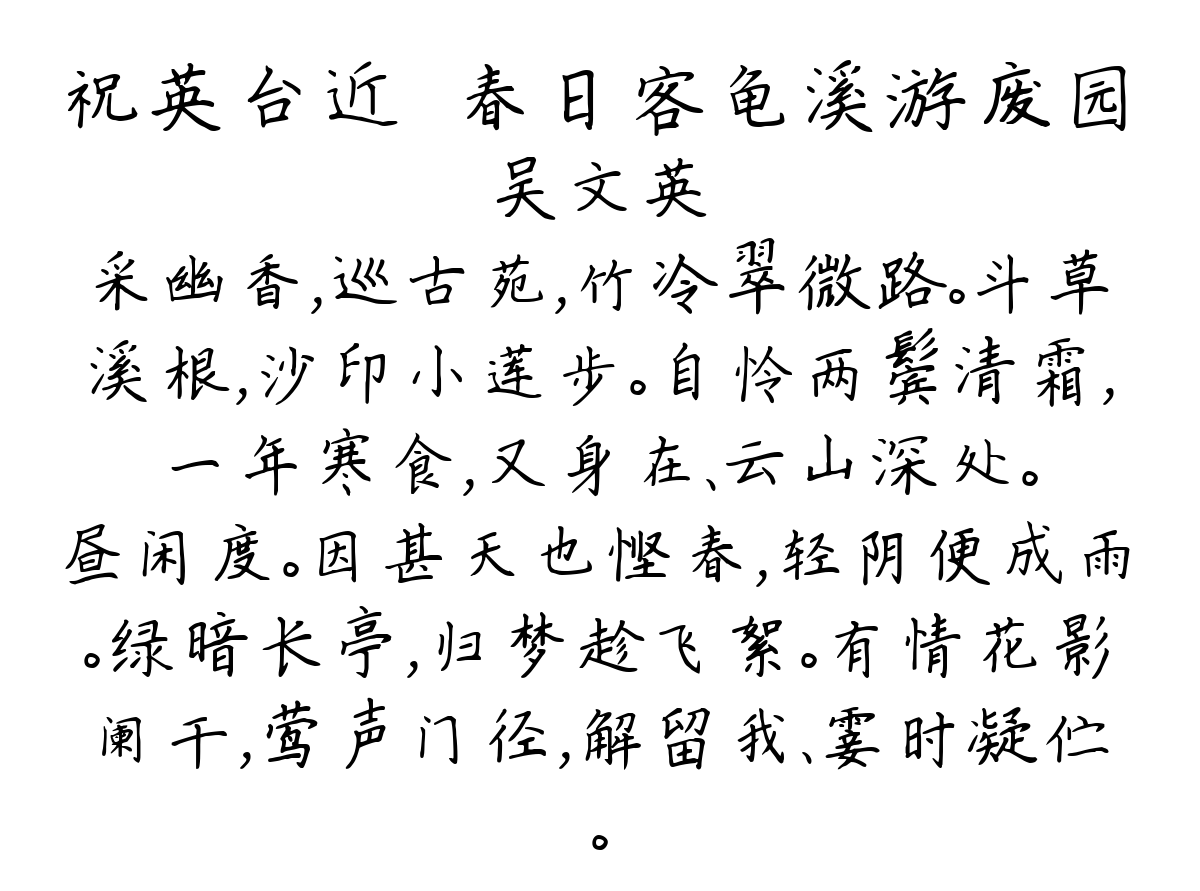 祝英台近 春日客龟溪游废园
吴文英
采幽香,巡古苑,竹冷翠微路。斗草
溪根,沙印小莲步。自怜两鬓清霜,
一年寒食,又身在、云山深处。
昼闲度。因甚天也悭春,轻阴便成雨
。绿暗长亭,归梦趁飞絮。有情花影
阑干,莺声门径,解留我、霎时凝伫
。